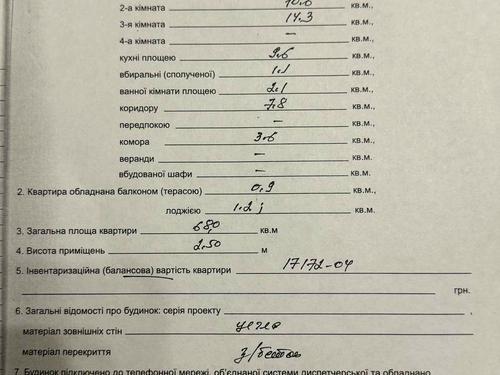 2-а кімната кв.м.,
3-я кімната 14.3 кв.м.,
4-а кімната — кв.м.,
кухні площею 9.6 кв.м.,
вбиральні (сполученої) 1.1 кв.м.,
ванної кімнати площею 2.1 кв.м.,
коридору 7.8 кв.м.,
передпокою — кв.м.,
комора 3.6 кв.м.,
веранди — кв.м.,
вбудованої шафи — кв.м.,
2. Квартира обладнана балконом (терасою) 0,9 кв.м.,
лоджією 1.2; кв.м.
3. Загальна площа квартири 68,0 кв.м
4. Висота приміщень 2,50 м
5. Інвентаризаційна (балансова) вартість квартири 17172-04
грн.
6. Загальні відомості про будинок: серія проекту
матеріал зовнішніх стін цегла
матеріал перекриття з/бетон
7. Будинок підключено до телефонної мережі, об'єднаної системи диспетчерської та обладнано